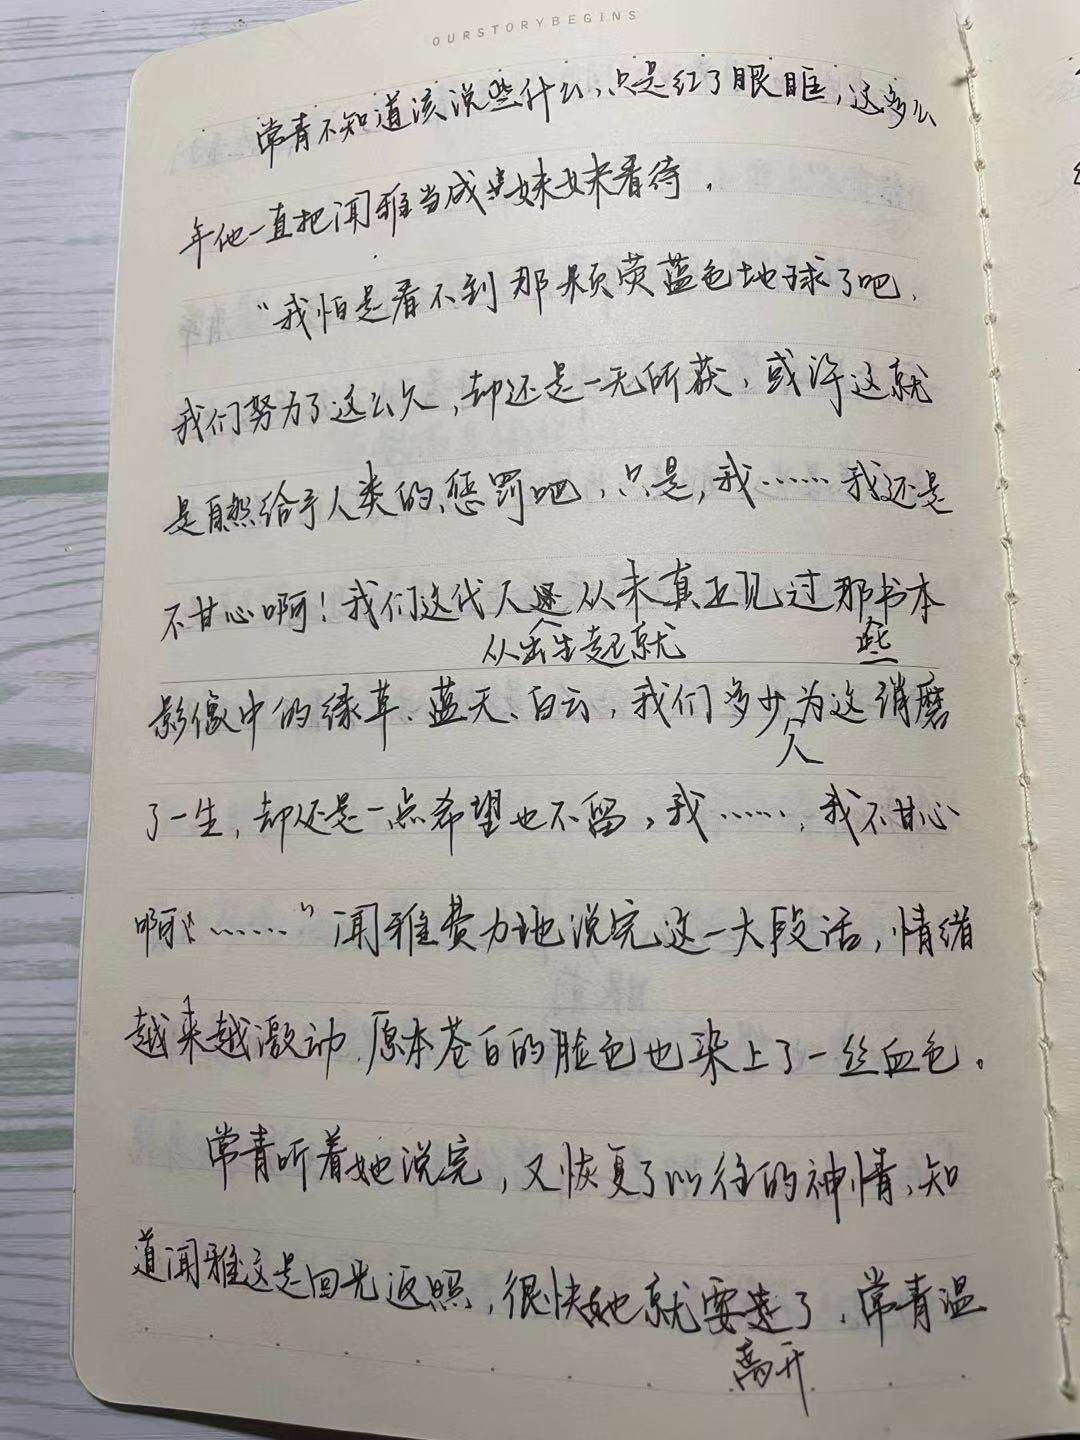 OURSTORYBEGINS
常青不知道该说些什么,只是红了眼眶,这多么
年他一直把闻雅当成妹妹看待.
“我怕是看不到那颗荧蓝色地球了吧.
我们努力了这么久,却还是一无所获,或许这就
是自然给予人类的惩罚吧,只是,我……我还是
不甘心啊!我们这代人从未真正见过那书本
从出生起就
影像中的绿草、蓝天、白云,我们多少为这消磨
人
了一生,却还是一点希望也不留,我……,我不甘心
啊……”闻雅费力地说完这一大段话,情绪
越来越激动,原本苍白的脸色也染上了一丝血色。
常青听着她说完,又恢复了以往的神情,知
道闻雅这是回光返照,很快她就要走了.常青温
离开